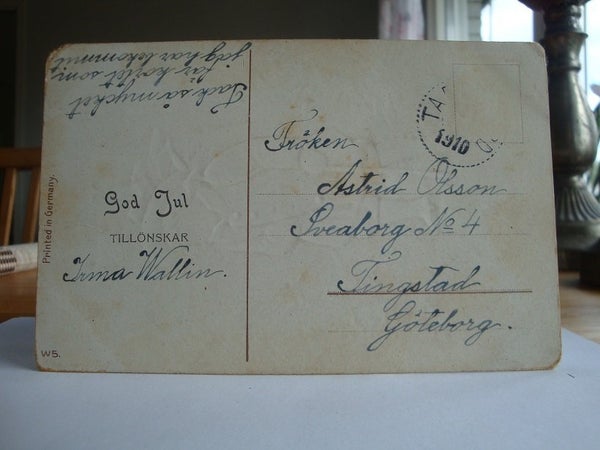 Tack så mycket
för kortet som
jag har bekommit
God Jul
TILLÖNSKAR
Irma Wallin.
Printed in Germany.
W5.
TA
1910
Fröken
Astrid Olsson
Sveaborg No 4
Tingstad
Göteborg.